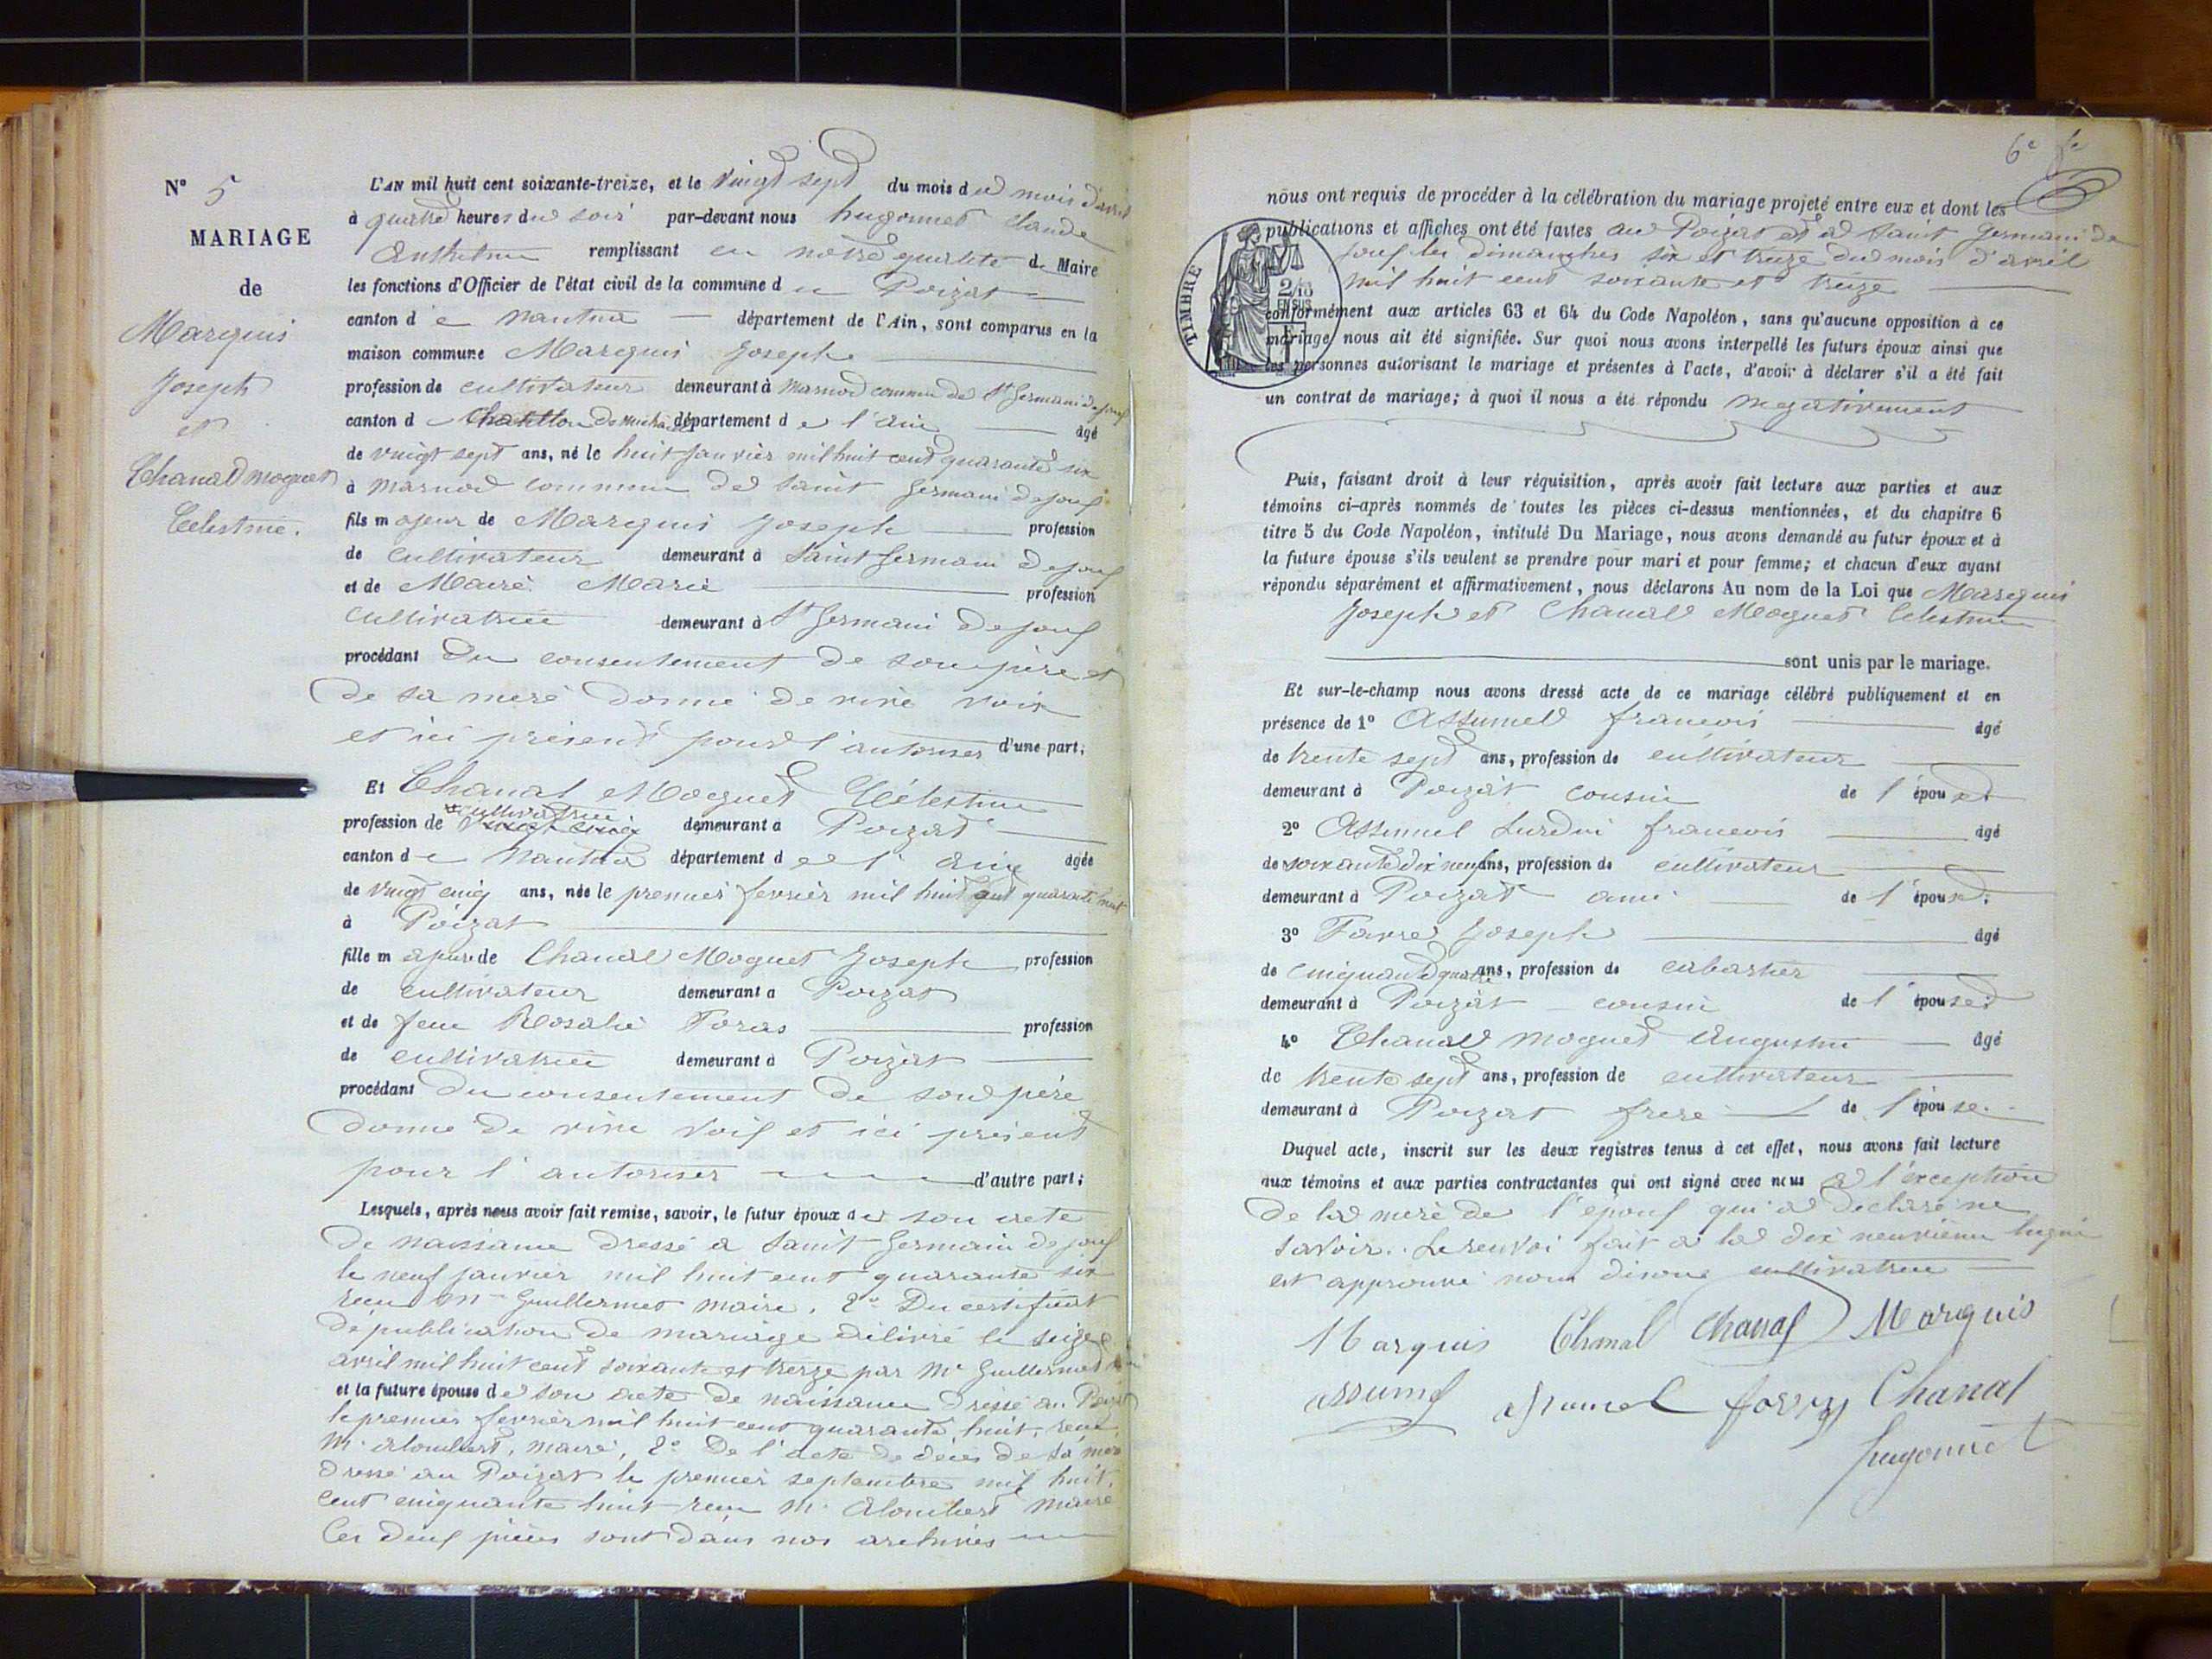 N° 5
MARIAGE
de
Marquis
Joseph
et
Chanal Moguet
Célestine.
L'AN mil huit cent soixante-treize, et le vingt sept du mois du mois d'avril
à quatre heures du soir par-devant nous hugonnet Claude
Anthelme remplissant en notre qualité de Maire
les fonctions d'Officier de l'état civil de la commune du Poizat
canton de Nantua département de l'Ain, sont comparus en la
maison commune Marquis Joseph
profession de cultivateur demeurant à Marnod commune de St Germain de joux
canton de Chatillon de Michaille département de l'ain âgé
de vingt sept ans, né le huit janvier mil huit cent quarante six
à Marnod commune de Saint Germain de joux
fils majeur de Marquis Joseph profession
de cultivateur demeurant à Saint Germain de joux
et de Maire Marie profession
cultivatrice demeurant à St Germain de joux
procédant du consentement de son père et
de sa mere donné de vive voix
et ici présent pour l'autoriser d'une part;
Et Chanal Moguet Célestine
cultivatrice
profession de vingt cinq demeurant à Poizat
canton de Nantua département de l'ain âgée
de vingt cinq ans, née le premier fevrier mil huit cent quarante huit
à Poizat
fille majeure de Chanal Moguet Joseph profession
de cultivateur demeurant à Poizat
et de feue Rosalie Foras profession
de cultivatrice demeurant à Poizat
procédant du consentement de son père
donné de vive voix et ici présent
pour l'autoriser d'autre part;
Lesquels, après nous avoir fait remise, savoir, le futur époux de son acte
de naissance dressé a Saint Germain de joux
le neuf janvier mil huit cent quarante six
reçu Mr Guillermet maire. 2° Du certificat
de publication de mariage délivré le seize
avril mil huit cent soixante et treize par Mr Guillermet
et la future épouse de son acte de naissance dressé au Poizat
le premier fevrier mil huit cent quarante huit, reçu
Mr Alombert, maire, 2° De l'acte de décès de sa mère
dressé au Poizat le premier septembre mil huit
cent cinquante huit reçu Mr Alombert maire
Ces deux pièces sont dans nos archives
6e
nous ont requis de procéder à la célébration du mariage projeté entre eux et dont les
publications et affiches ont été faites au Poizat et à Saint Germain de
joux les dimanches six et treize du mois d'avril
mil huit cent soixante et treize
conformément aux articles 63 et 64 du Code Napoléon, sans qu'aucune opposition à ce
mariage nous ait été signifiée. Sur quoi nous avons interpellé les futurs époux ainsi que
les personnes autorisant le mariage et présentes à l'acte, d'avoir à déclarer s'il a été fait
un contrat de mariage; à quoi il nous a été répondu négativement
TIMBRE
2/10
EN SUS
Puis, faisant droit à leur réquisition, après avoir fait lecture aux parties et aux
témoins ci-après nommés de toutes les pièces ci-dessus mentionnées, et du chapitre 6
titre 5 du Code Napoléon, intitulé Du Mariage, nous avons demandé au futur époux et à
la future épouse s'ils veulent se prendre pour mari et pour femme; et chacun d'eux ayant
répondu séparément et affirmativement, nous déclarons Au nom de la Loi que Marquis
Joseph et Chanal Moguet Celestine
sont unis par le mariage.
Et sur-le-champ nous avons dressé acte de ce mariage célébré publiquement et en
présence de 1° Assumel francois âgé
de trente sept ans, profession de cultivateur
demeurant à Poizat cousin de l'épouse
2° Assumel Lurdin francois âgé
de soixante dix neuf ans, profession de cultivateur
demeurant à Poizat ami de l'épouse;
3° Favre Joseph âgé
de cinquante quatre ans, profession de cabartier
demeurant à Poizat cousin de l'épouse;
4° Chanal Moguet Augustin âgé
de trente sept ans, profession de cultivateur
demeurant à Poizat frere de l'épouse.
Duquel acte, inscrit sur les deux registres tenus à cet effet, nous avons fait lecture
aux témoins et aux parties contractantes qui ont signé avec nous à l'exception
de la mere de l'époux qui a déclaré ne
savoir. Le renvoi fait a la dix neuvième ligne
est approuvé nous disons cultivatrice
Marquis Chanal Chanal Marquis
assumel assumel favre Chanal
hugonnet